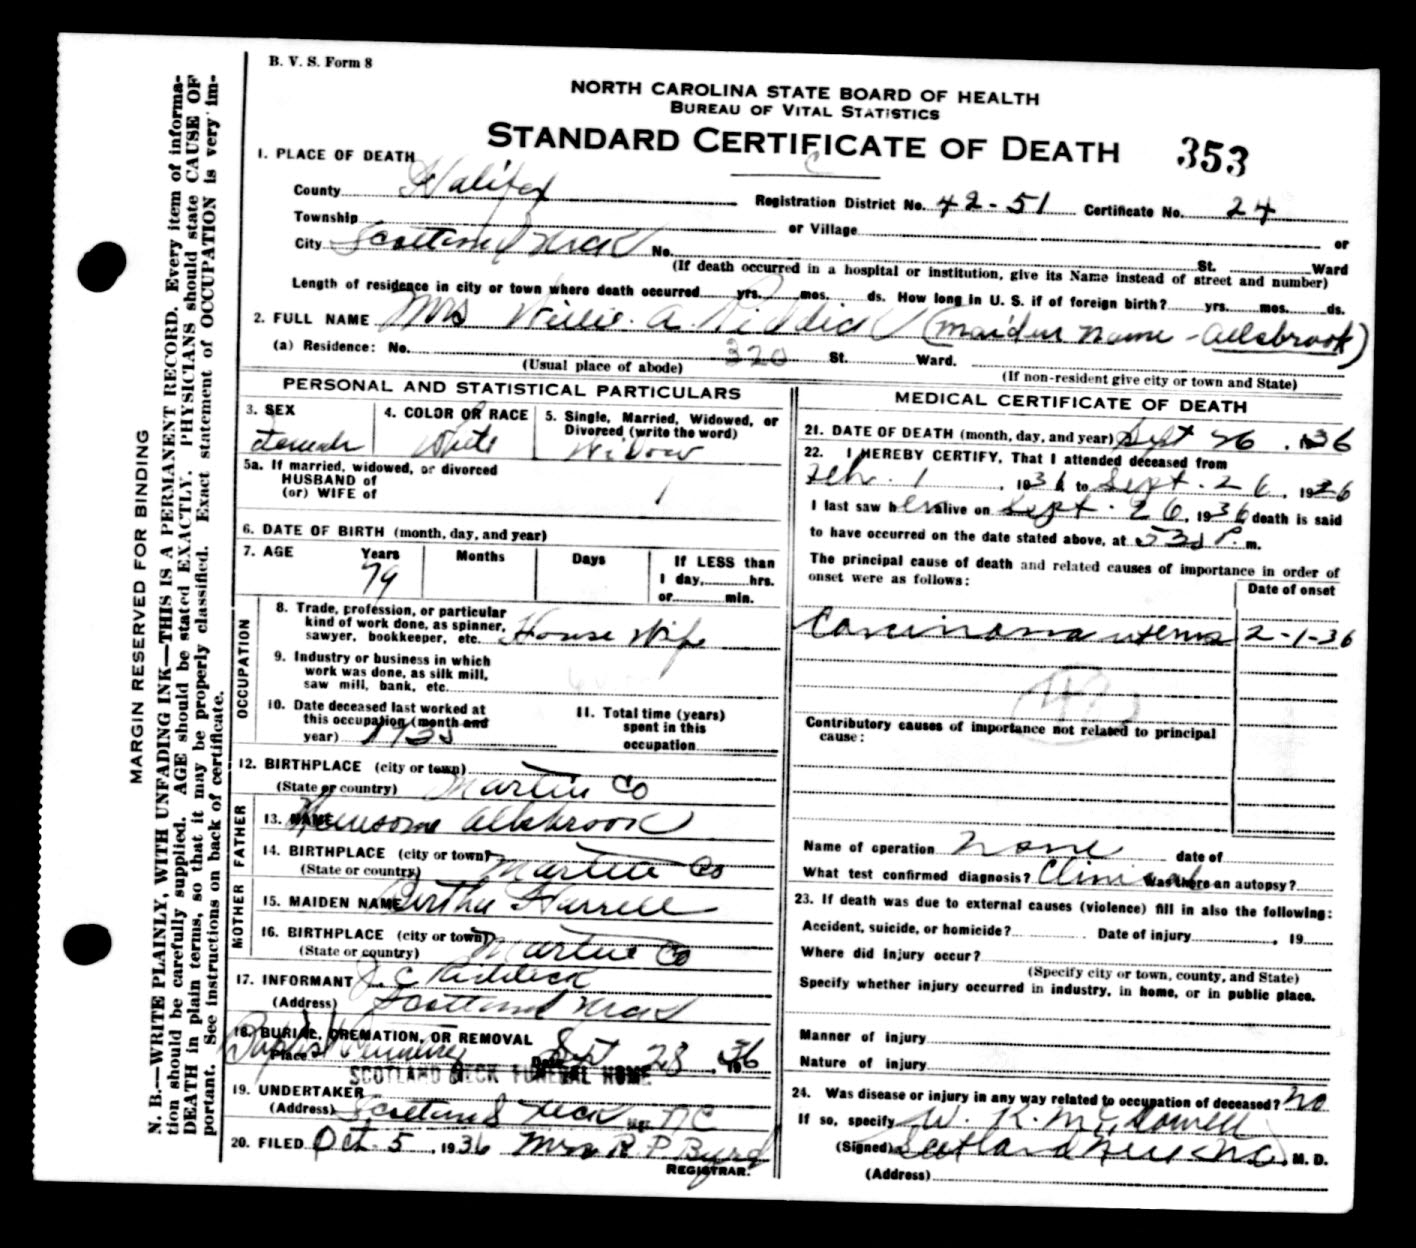 B. V. S. Form 8
NORTH CAROLINA STATE BOARD OF HEALTH
BUREAU OF VITAL STATISTICS
STANDARD CERTIFICATE OF DEATH 353
C
1. PLACE OF DEATH
County Halifax Registration District No. 42-51 Certificate No. 24
Township or Village or
City Scotland Neck No. St. Ward
(If death occurred in a hospital or institution, give its Name instead of street and number)
Length of residence in city or town where death occurred yrs. mos. ds. How long in U. S. if of foreign birth? yrs. mos. ds.
2. FULL NAME Mrs Willie. A. Riddick (maiden name - Allsbrook)
(a) Residence: No. 320 St. Ward.
(Usual place of abode) (If non-resident give city or town and State)
PERSONAL AND STATISTICAL PARTICULARS
3. SEX Female
4. COLOR OR RACE White
5. Single, Married, Widowed, or Divorced (write the word) Widow
5a. If married, widowed, or divorced
HUSBAND of
(or) WIFE of
6. DATE OF BIRTH (month, day, and year)
7. AGE Years 79 Months Days If LESS than
1 day, hrs.
or min.
OCCUPATION
8. Trade, profession, or particular
kind of work done, as spinner,
sawyer, bookkeeper, etc. House Wife
9. Industry or business in which
work was done, as silk mill,
saw mill, bank, etc.
10. Date deceased last worked at
this occupation (month and
year) 1935
11. Total time (years)
spent in this
occupation
12. BIRTHPLACE (city or town)
(State or country) Martin Co
FATHER
13. NAME Allsbrook
14. BIRTHPLACE (city or town)
(State or country) Martin Co
MOTHER
15. MAIDEN NAME Bertha Harrell
16. BIRTHPLACE (city or town)
(State or country) Martin Co
17. INFORMANT J. C. Riddick
(Address) Scotland Neck
18. BURIAL, CREMATION, OR REMOVAL
Place Baptist Cemetery Date Sept 28, 1936
SCOTLAND NECK FUNERAL HOME
19. UNDERTAKER
(Address) Scotland Neck NC
20. FILED Oct. 5, 1936 Mrs R. P. Byrd
REGISTRAR.
MEDICAL CERTIFICATE OF DEATH
21. DATE OF DEATH (month, day, and year) Sept 26, 1936
22. I HEREBY CERTIFY, That I attended deceased from
Feb. 1, 1936 to Sept. 26, 1936
I last saw her alive on Sept. 26, 1936 death is said
to have occurred on the date stated above, at 530 P. m.
The principal cause of death and related causes of importance in order of
onset were as follows:
Date of onset
Carcinoma uterus 2-1-36
Contributory causes of importance not related to principal
cause:
Name of operation None date of
What test confirmed diagnosis? Clinical Was there an autopsy?
23. If death was due to external causes (violence) fill in also the following:
Accident, suicide, or homicide? Date of injury , 19
Where did injury occur?
(Specify city or town, county, and State)
Specify whether injury occurred in industry, in home, or in public place.
Manner of injury
Nature of injury
24. Was disease or injury in any way related to occupation of deceased? No
If so, specify
(Signed) W. K. McDowell M. D.
(Address) Scotland Neck N.C.
MARGIN RESERVED FOR BINDING
N. B.—WRITE PLAINLY, WITH UNFADING INK—THIS IS A PERMANENT RECORD. Every item of informa-
tion should be carefully supplied. AGE should be stated EXACTLY. PHYSICIANS should state CAUSE OF
DEATH in plain terms, so that it may be properly classified. Exact statement of OCCUPATION is very im-
portant. See instructions on back of certificate.